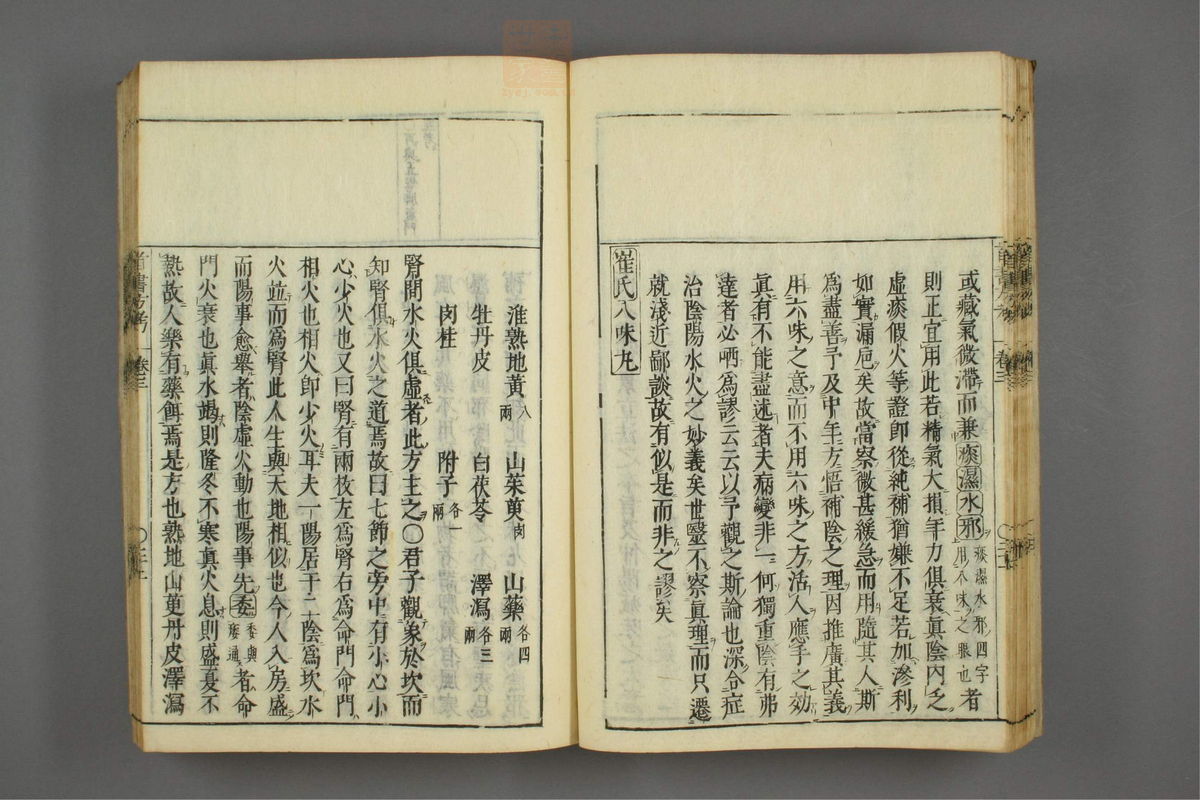 或藏氣微滯而兼痰濕水邪痰濕水邪四字用六味之眼也者
則正宜用此若精氣大損年力俱衰眞陰内乏
虛痰假火等證即從純補猶嫌不足若加滲利
如實漏巵矣故當察微甚緩急而用隨其人斯
爲盡善予及中年方悟補陰之理因推廣其義
用六味之意而不用六味之方活人應手之効
眞有不能盡述者夫病變非一何獨重陰有弗
達者必哂爲謬云云以予觀之斯論也深合症
治陰陽水火之妙義矣世醫不察眞理而只遷
就淺近鄙談故有似是而非之謬矣
崔氏八味丸
淮熟地黃八兩 山茱萸肉 山藥各四兩
牡丹皮 白茯苓 澤瀉各三兩
肉桂 附子各一兩
腎間水火俱虛者此方主之〇君子觀象於坎而
知腎俱水火之道焉故曰七節之旁中有小心小
心少火也又曰腎有兩枚左爲腎右爲命門命門
相火也相火即少火耳夫一陽居于二陰爲坎水
火竝而爲腎此人生與天地相似也今人入房盛
而陽事愈舉者陰虛火動也陽事先委委與痿通者命
門火衰也眞水竭則隆冬不寒眞火息則盛夏不
熱故人樂有藥餌焉是方也熟地山萸丹皮澤瀉
卷三
卷三